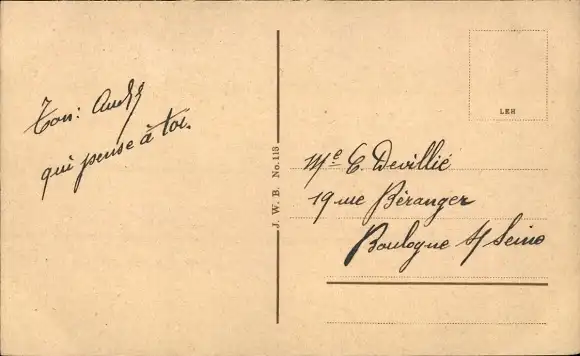 Ton: André
qui pense à toi.
J. W. B. No. 113
LEH
Me E. Devillié
19 rue Béranger
Boulogne s/ Seine